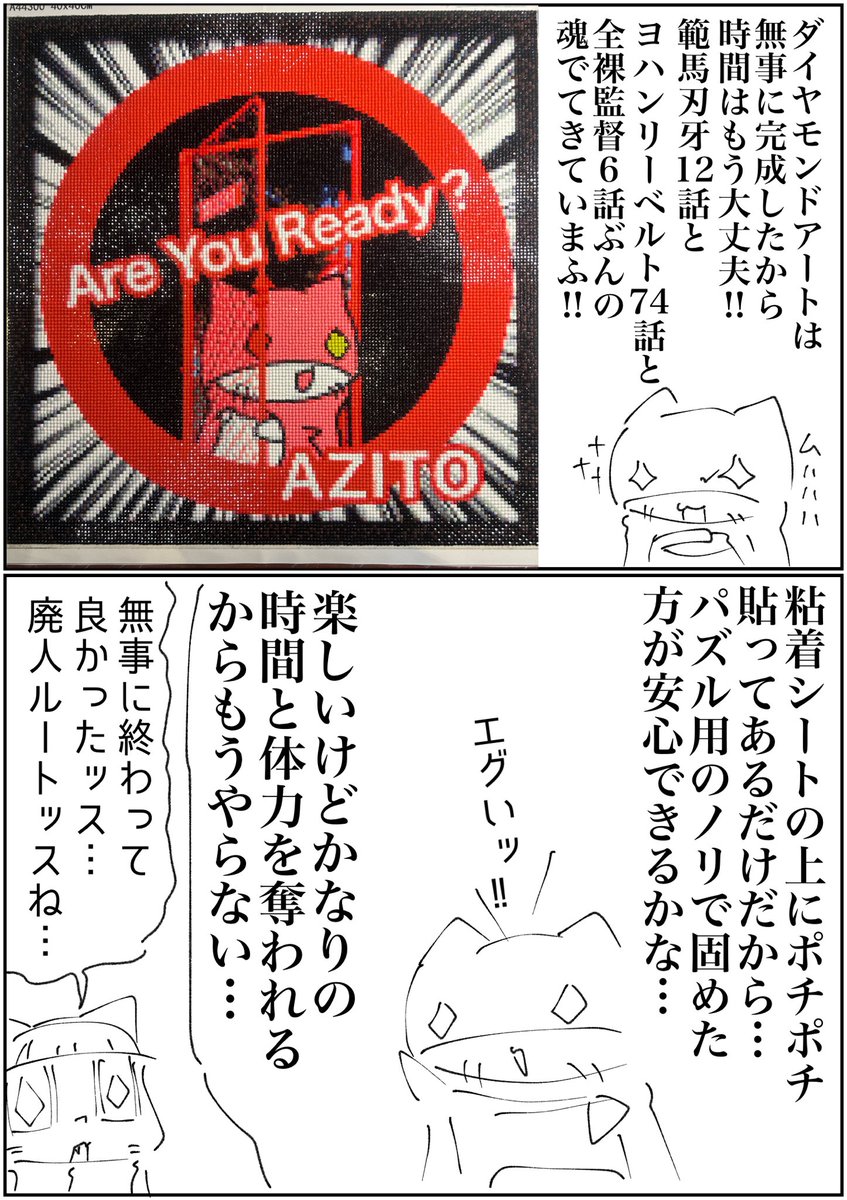 ダイヤモンドアートは
無事に完成したから
時間はもう大丈夫!!
範馬刃牙12話と
ヨハンリーベルト74話と
全裸監督6話ぶんの
魂でてきていまふ!!
ムハハハハ
A44300 40x40CM
Are You Ready?
AZITO
粘着シートの上にポチポチ
貼ってあるだけだから…
パズル用のノリで固めた
方が安心できるかな…
エグいッ!!
楽しいけどかなりの
時間と体力を奪われる
からもうやらない…
無事に終わって
良かったッス…
廃人ルートッスね…